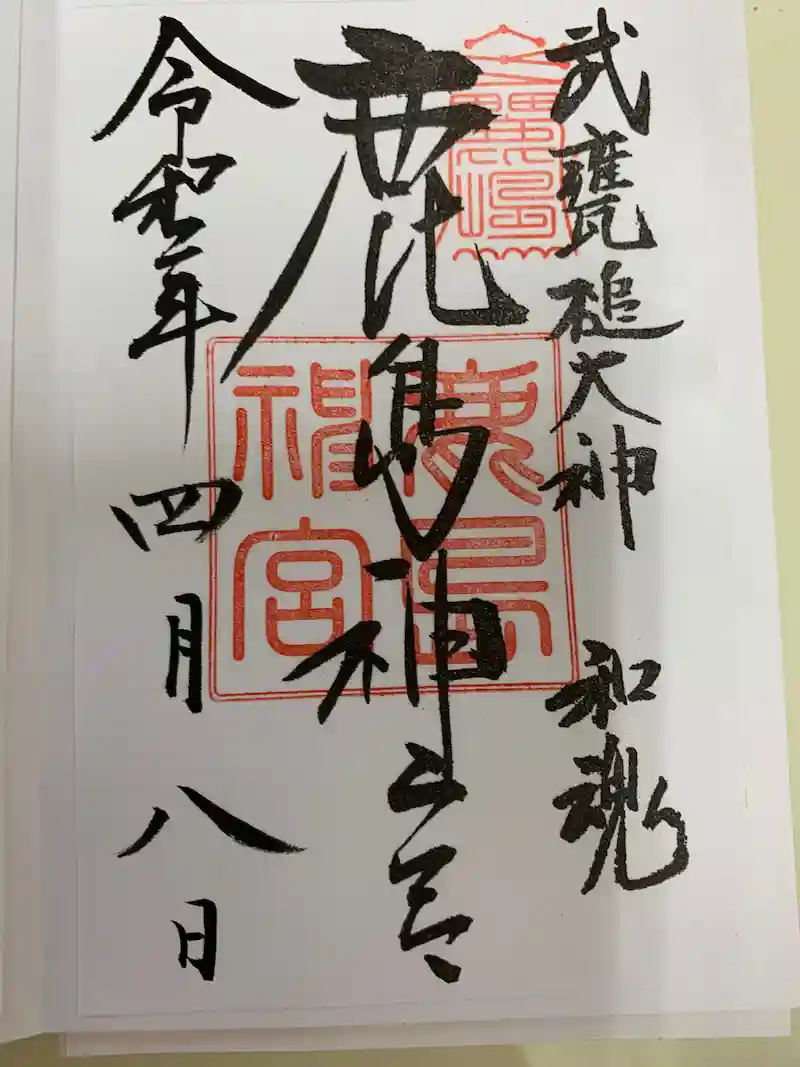 武甕槌大神 和魂
鹿島神宮
鹿島神宮
令和年四月八日